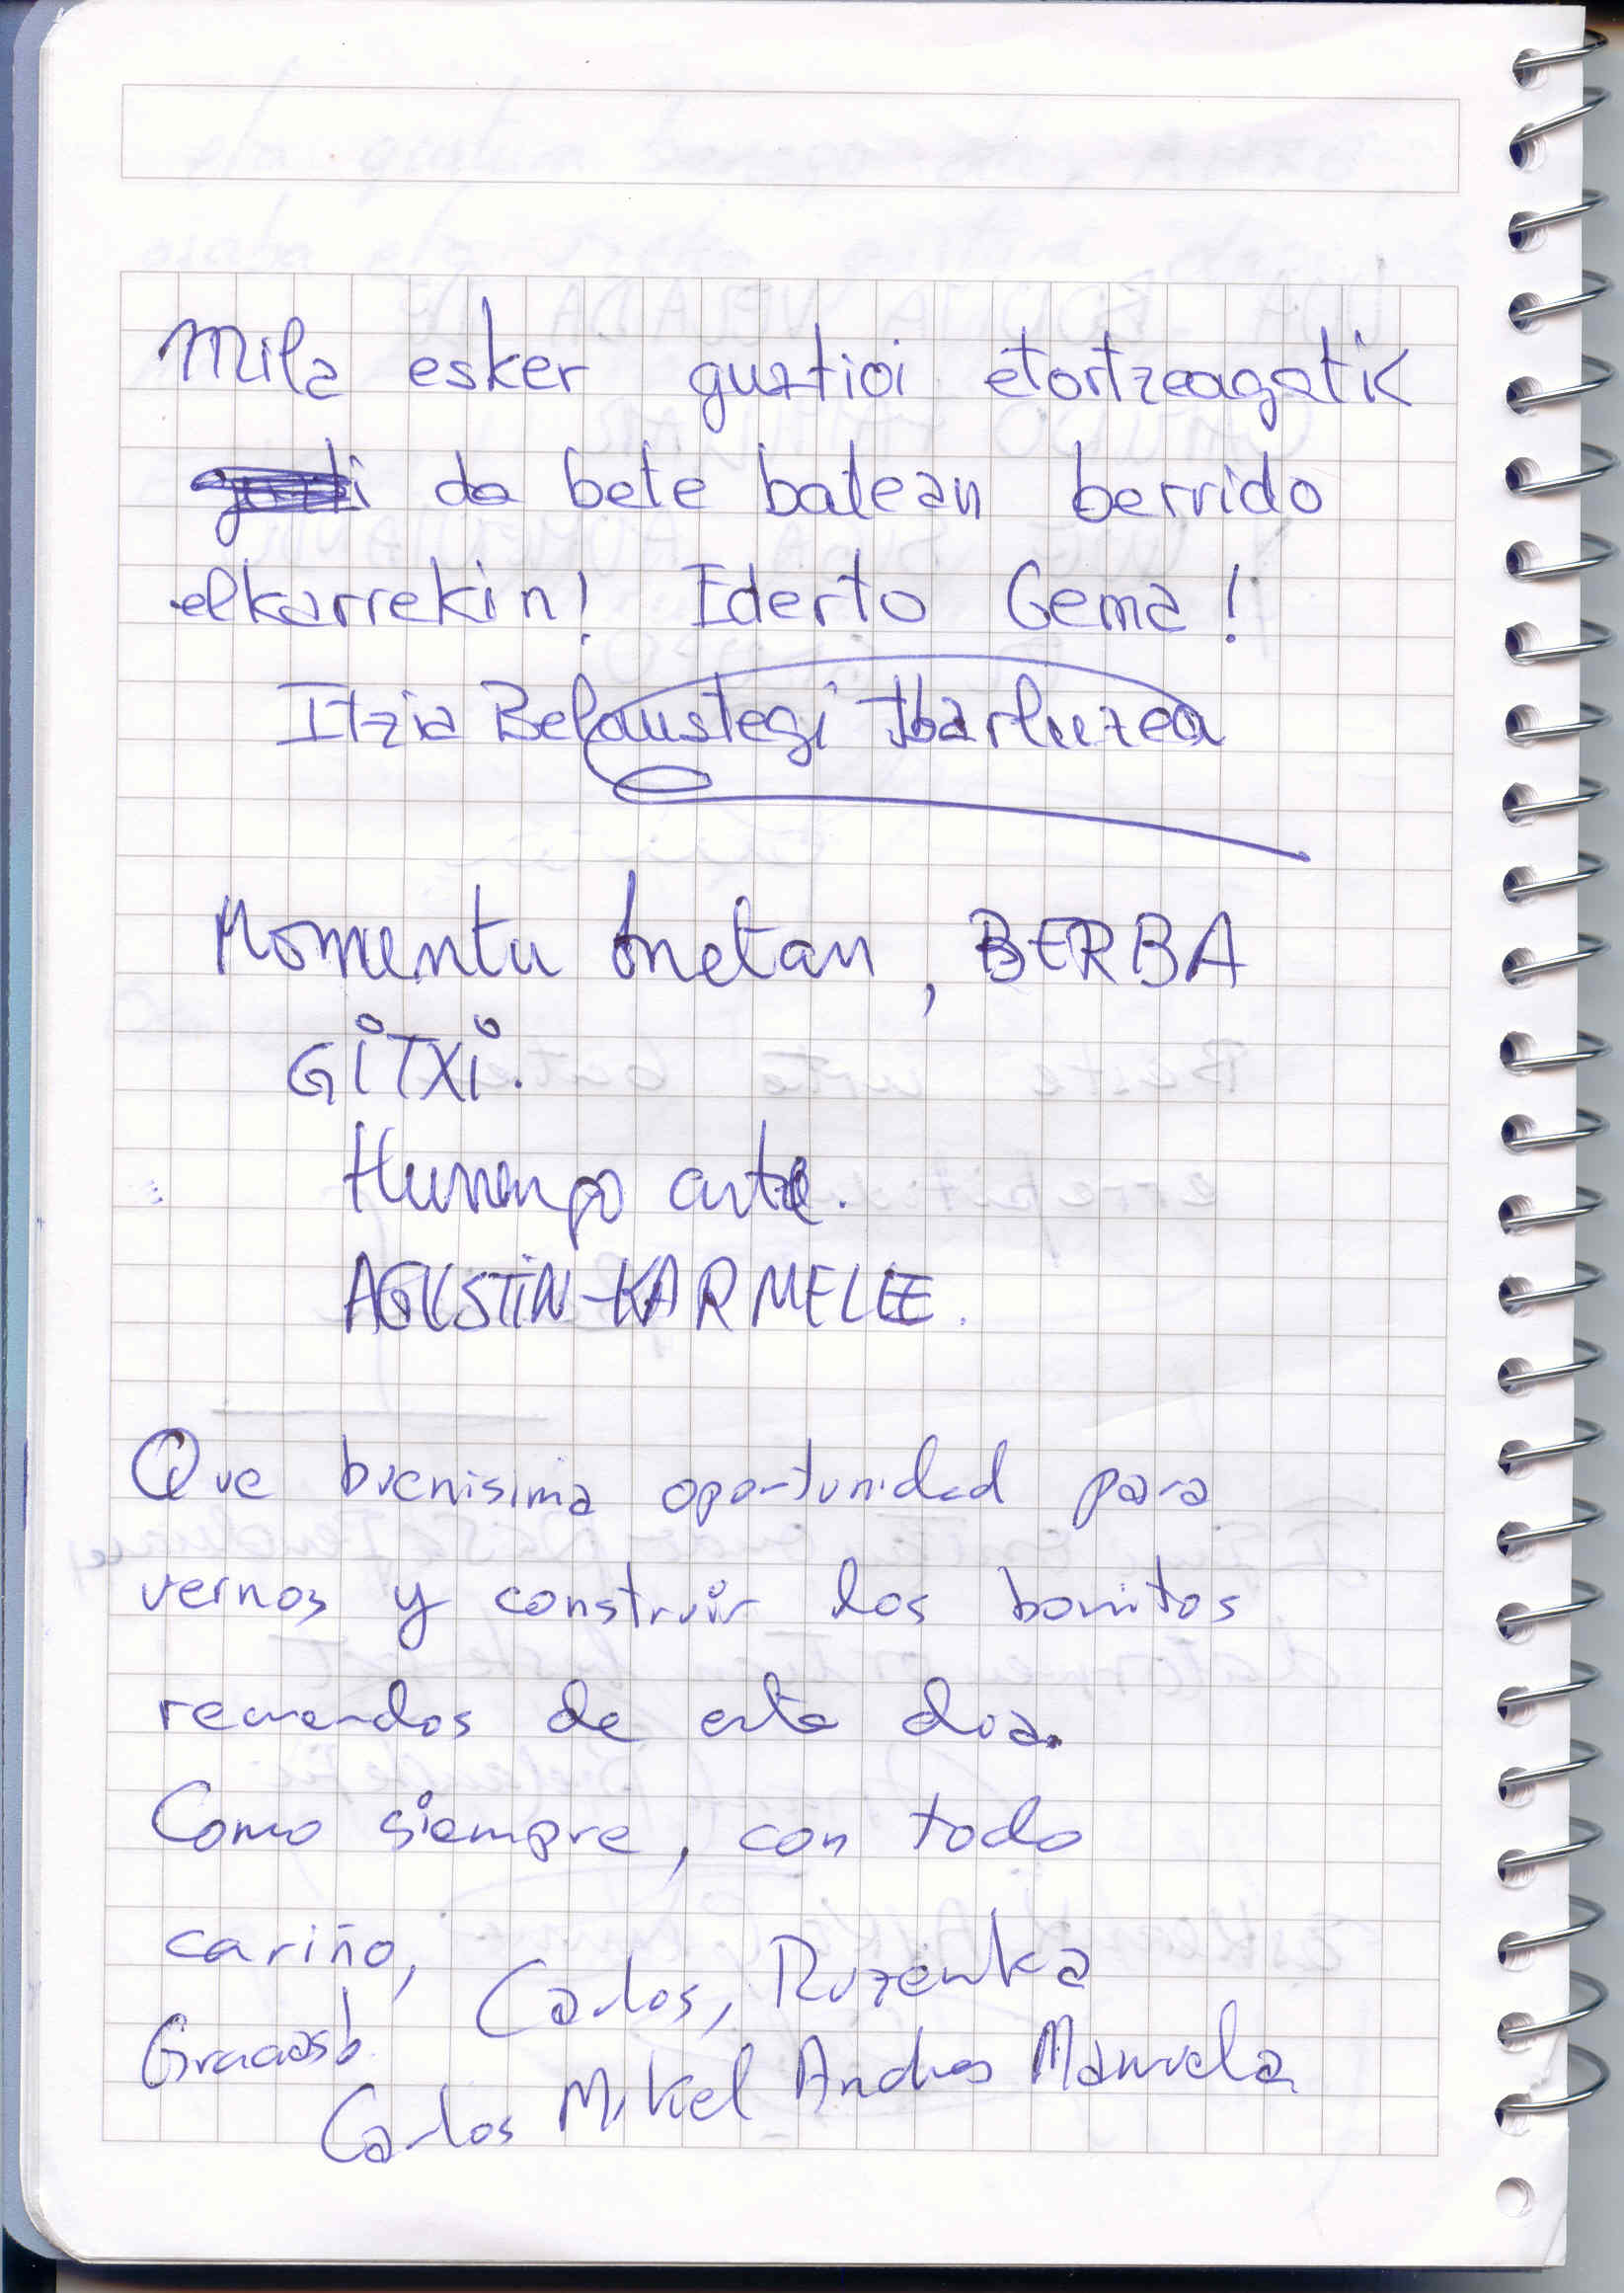 Mila esker guztioi etortzeagatik
da bete batean berrido
elkarrekin! Ederto Gema!
Itzia Belaustegi Ibarluzea
Momentu onetan, BERBA
GiTXi.
Hurrengo arte.
AGUSTiN-KARMELE.
Que buenisima oportunidad para
vernos y construir los bonitos
recuerdos de este dia.
Como siempre, con todo
cariño,
Carlos, Ruzenka
Gracias!
Carlos Mikel Andres Manuela